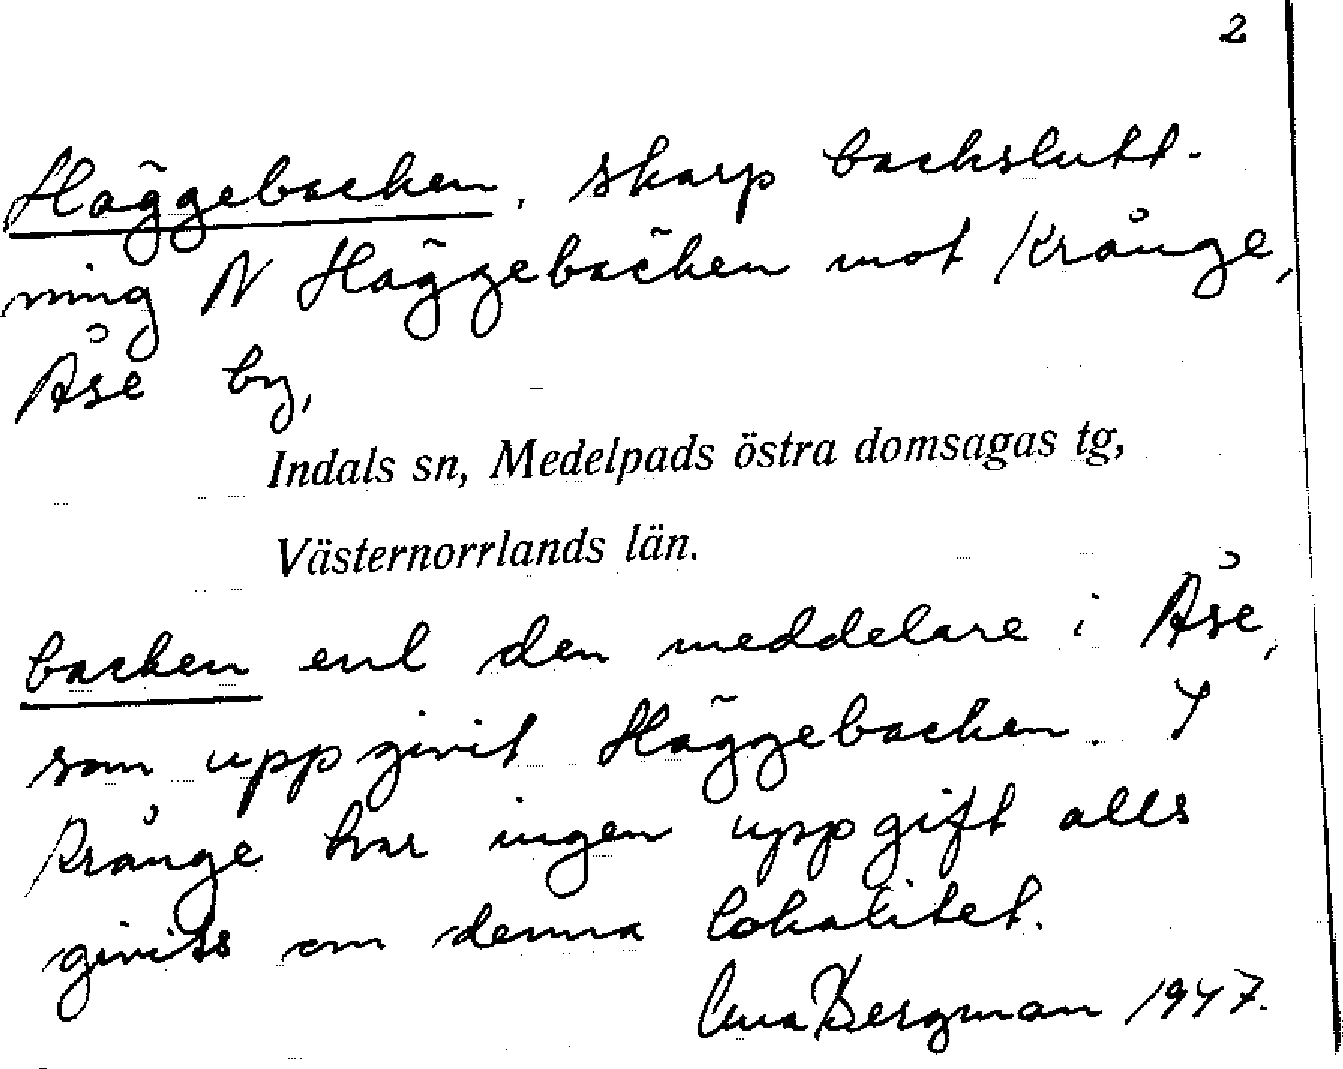 2
Häggebacken, skarp backslutt-
ning N Häggebäcken mot Krånge,
Åse by,
Indals sn, Medelpads östra domsagas tg,
Västernorrlands län.
backen enl den meddelare i Åse,
som uppgivit Häggebacken. I
Krånge har ingen uppgift alls
givits om denna lokalitet.
Bergman 1947.